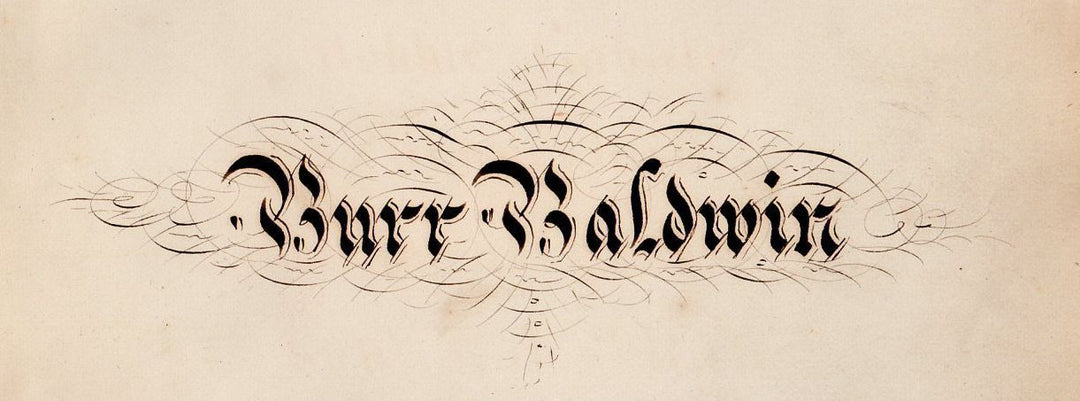 Burr Baldwin